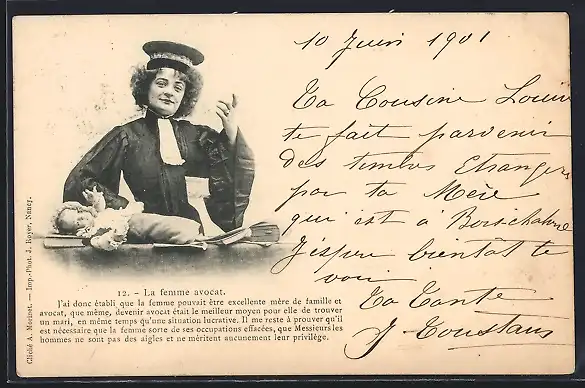 10 Juin 1901
Ta Cousine Louise
te fait parvenir
des timbres Etrangers
par ta Mère
qui est à
J'espère bientôt te
voir
Ta Tante
J Coustans
12. – La femme avocat.
J'ai donc établi que la femme pouvait être excellente mère de famille et
avocat, que même, devenir avocat était le meilleur moyen pour elle de trouver
un mari, en même temps qu'une situation lucrative. Il me reste à prouver qu'il
est nécessaire que la femme sorte de ses occupations effacées, que Messieurs les
hommes ne sont pas des aigles et ne méritent aucunement leur privilège.
Cliché A. Mermet. — Imp.-Phot. J. Royer, Nancy.